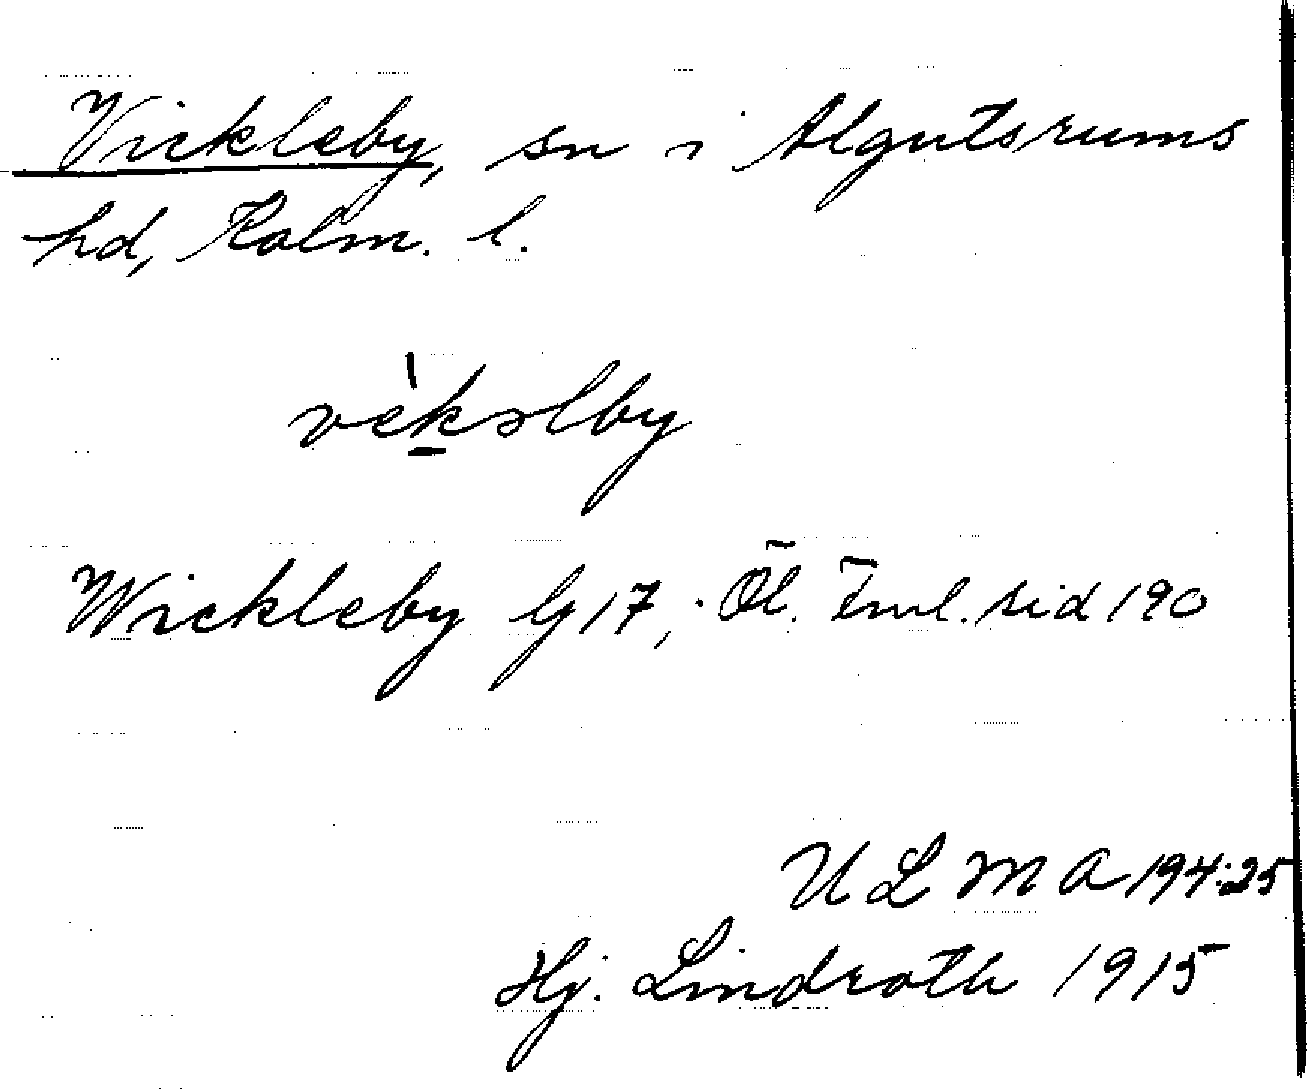 Vickleby, sn i Algutsrums
hd, Kalm. l.
vèkəlby
Wickleby G 17, Öl. Inv. sid 190
ULMA 194:25
Hj. Lindroth 1915